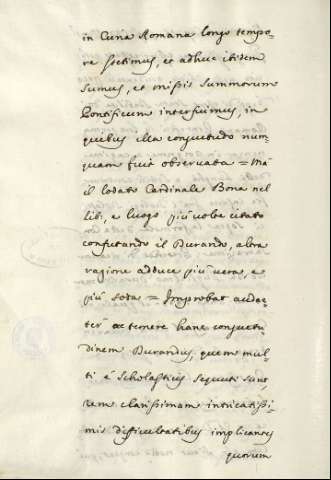 in Curia Romana longo tempo=
re stetimus, et adhuc itidem
sumus, et missis summorum
Pontificum interfuimus, in
quibus illa consuetudo num=
quam fuit observata = Ma
il lodato Cardinale Bona nel
lib:, e luogo più volte citato
confutando il Durando, altra
ragione adduce più vera, e
più soda = Improbat audac=
ter ac temere hanc consuetu=
dinem Durandus, quem mul=
ti è Scholasticis sequuti sunt
rem clarissimam intricatissi=
mis difficultatibus implicantes
quorum